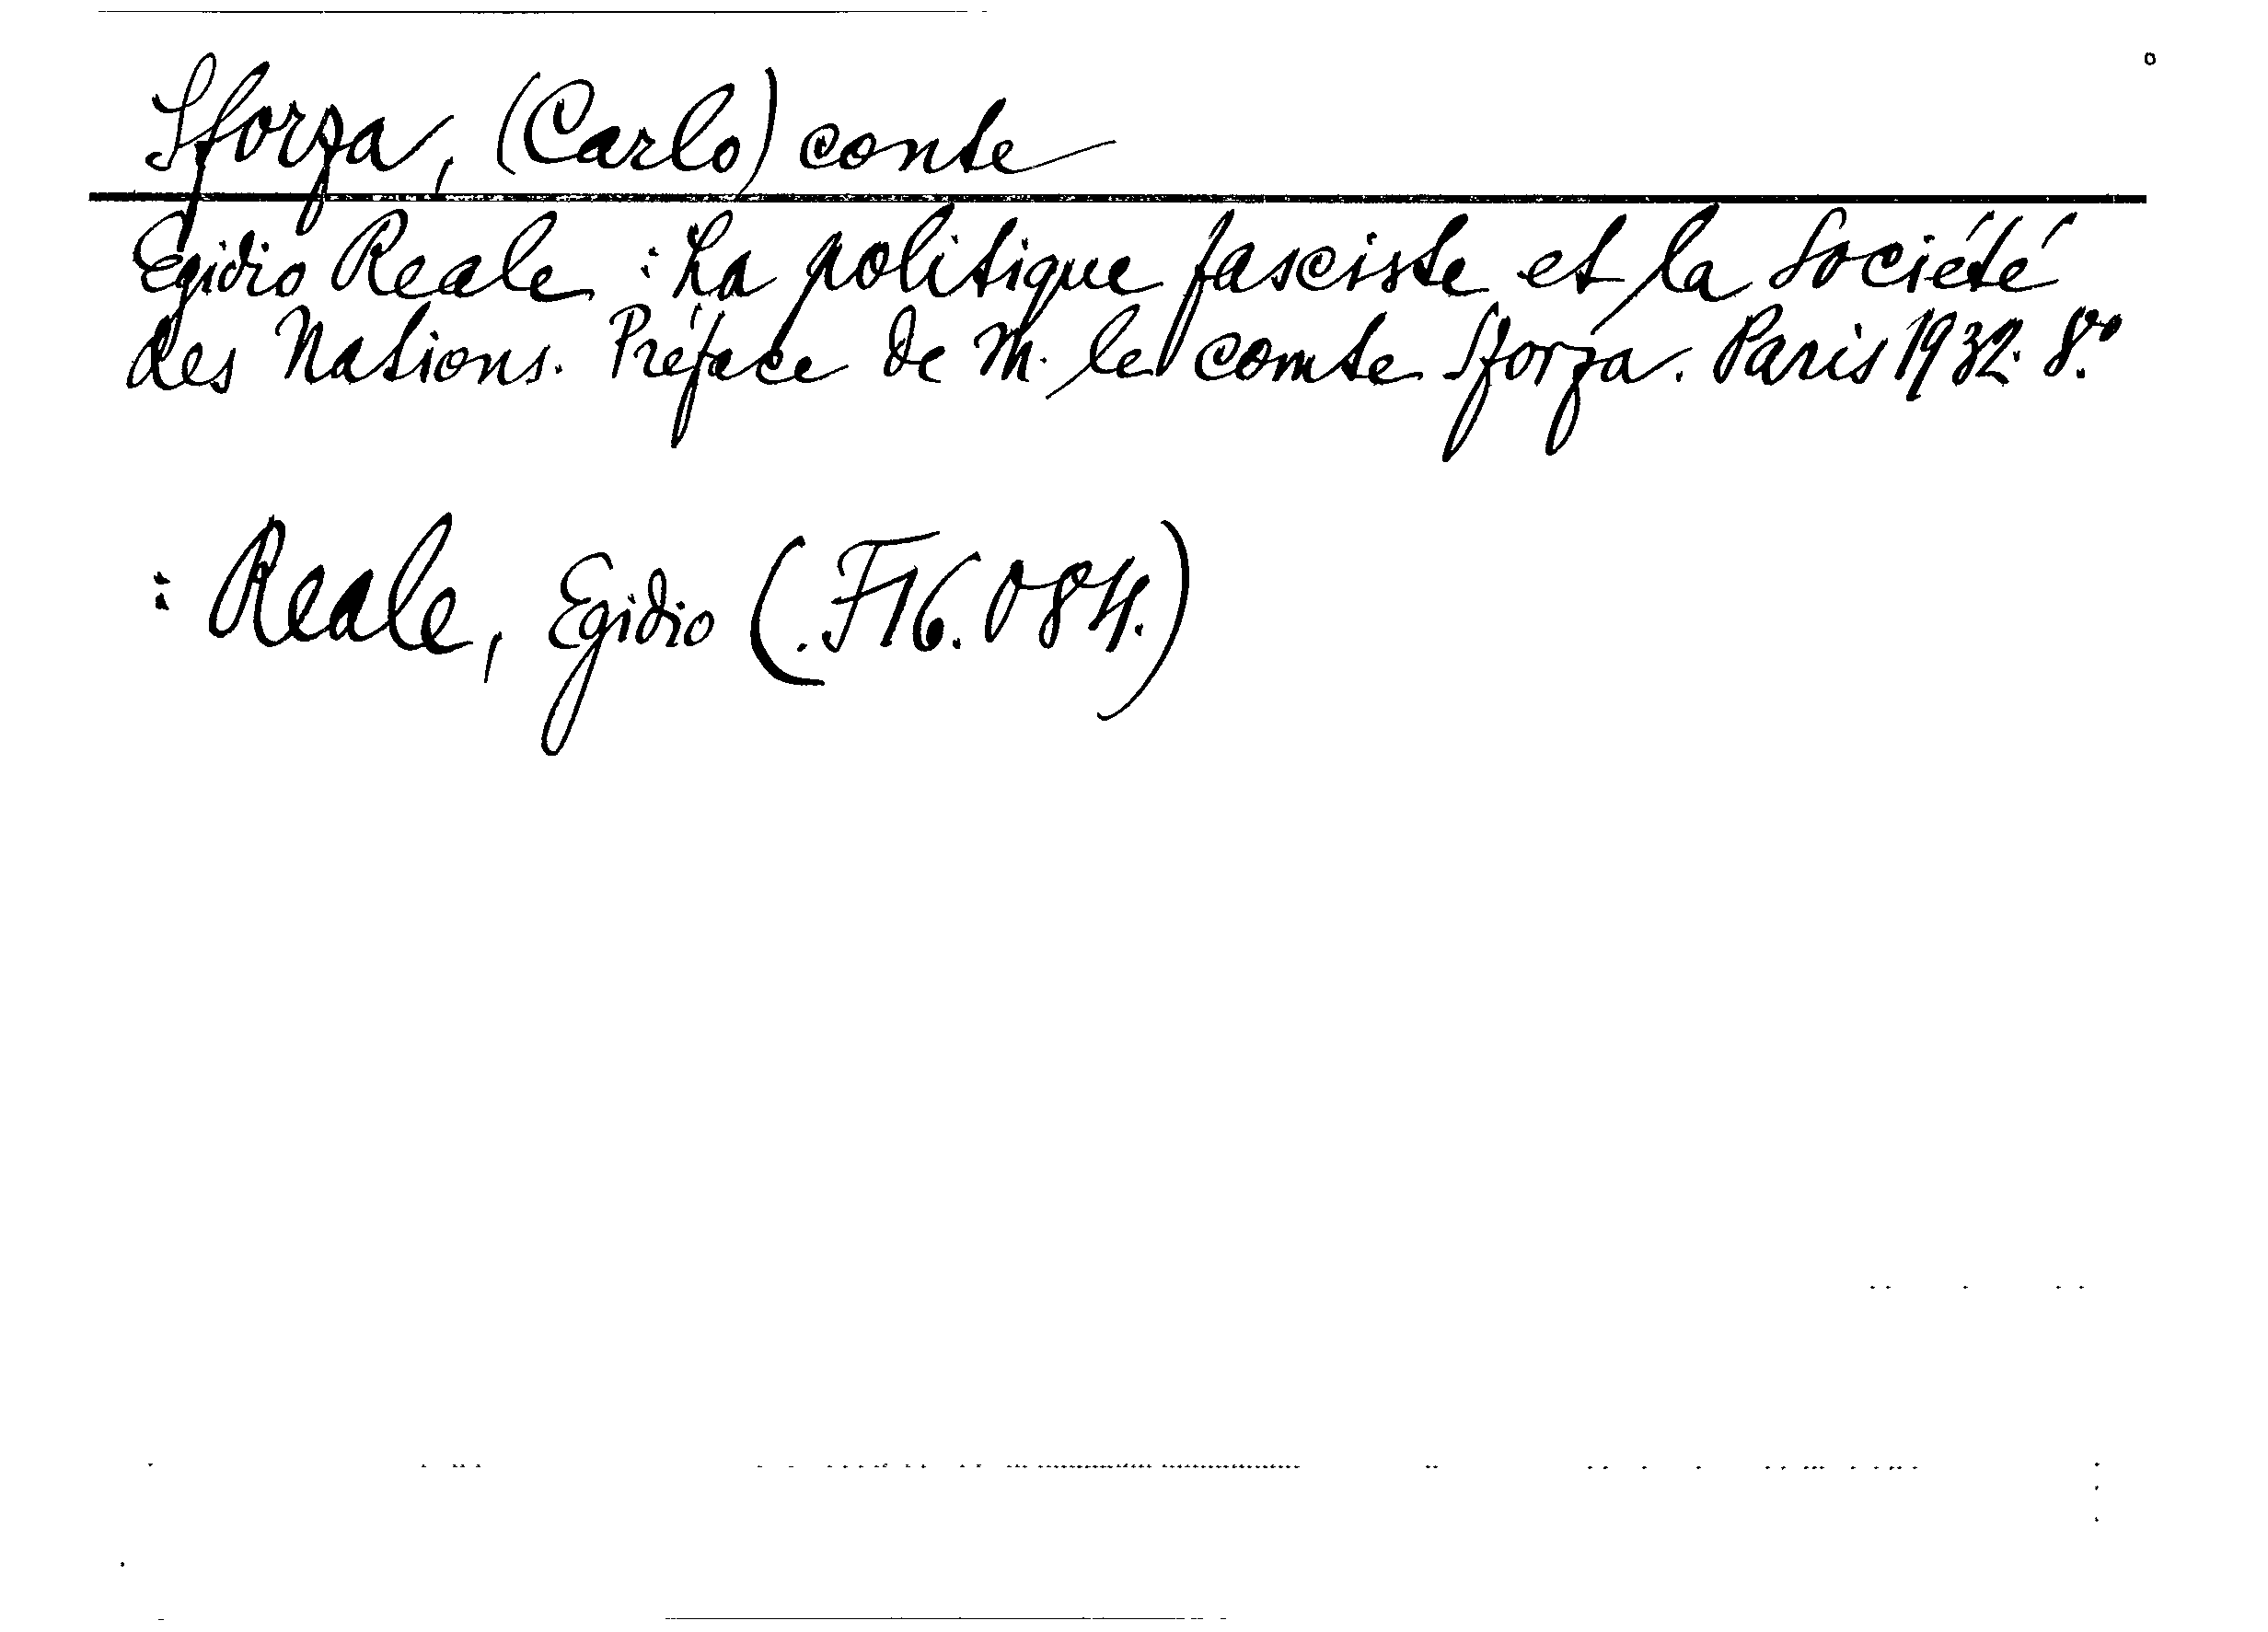 Sforza, (Carlo) conte
Egidio Reale : La politique fasciste et la Société
des Nations. Préface de M. le comte Sforza. Paris 1932. 8.º
: Reale, Egidio (. F16.084.)